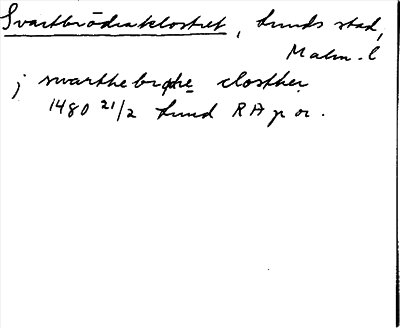 Svartbrödraklostret, Lunds stad,
Malm. l
j swarthebrøthre closther
1480 21/2 Lund RA p or.